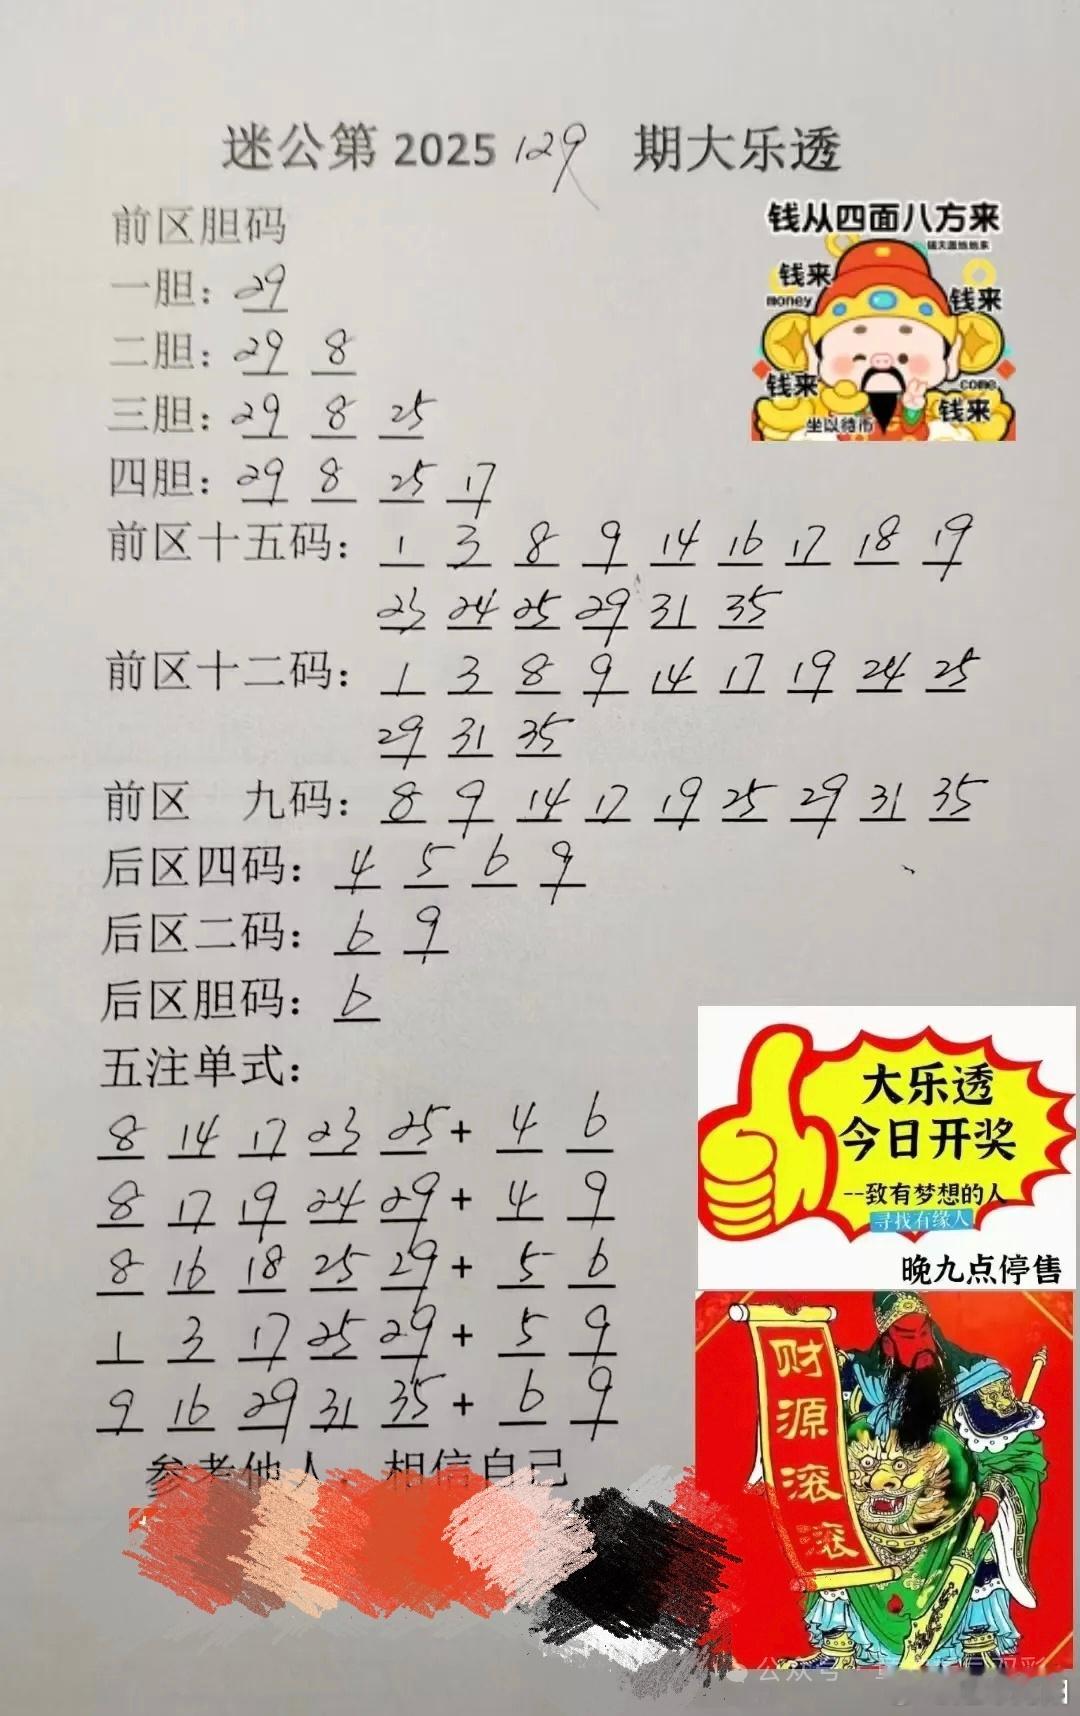 迷公第 2025 129 期大乐透
前区胆码
一胆：29
二胆：29 8
三胆：29 8 25
四胆：29 8 25 17
前区十五码：1 3 8 9 14 16 17 18 19
23 24 25 29 31 35
前区十二码：1 3 8 9 14 17 19 24 25
29 31 35
前区 九码：8 9 14 17 19 25 29 31 35
后区四码：4 5 6 9
后区二码：6 9
后区胆码：6
五注单式：
8 14 17 23 25 + 4 6
8 17 19 24 29 + 4 9
8 16 18 25 29 + 5 6
1 3 17 25 29 + 5 9
9 16 29 31 35 + 6 9
参考他人，相信自己
钱从四面八方来
钱来
money
钱来
钱来
come
钱来
坐以待币
大乐透
今日开奖
--致有梦想的人
寻找有缘人
晚九点停售
财源滚滚
公众号